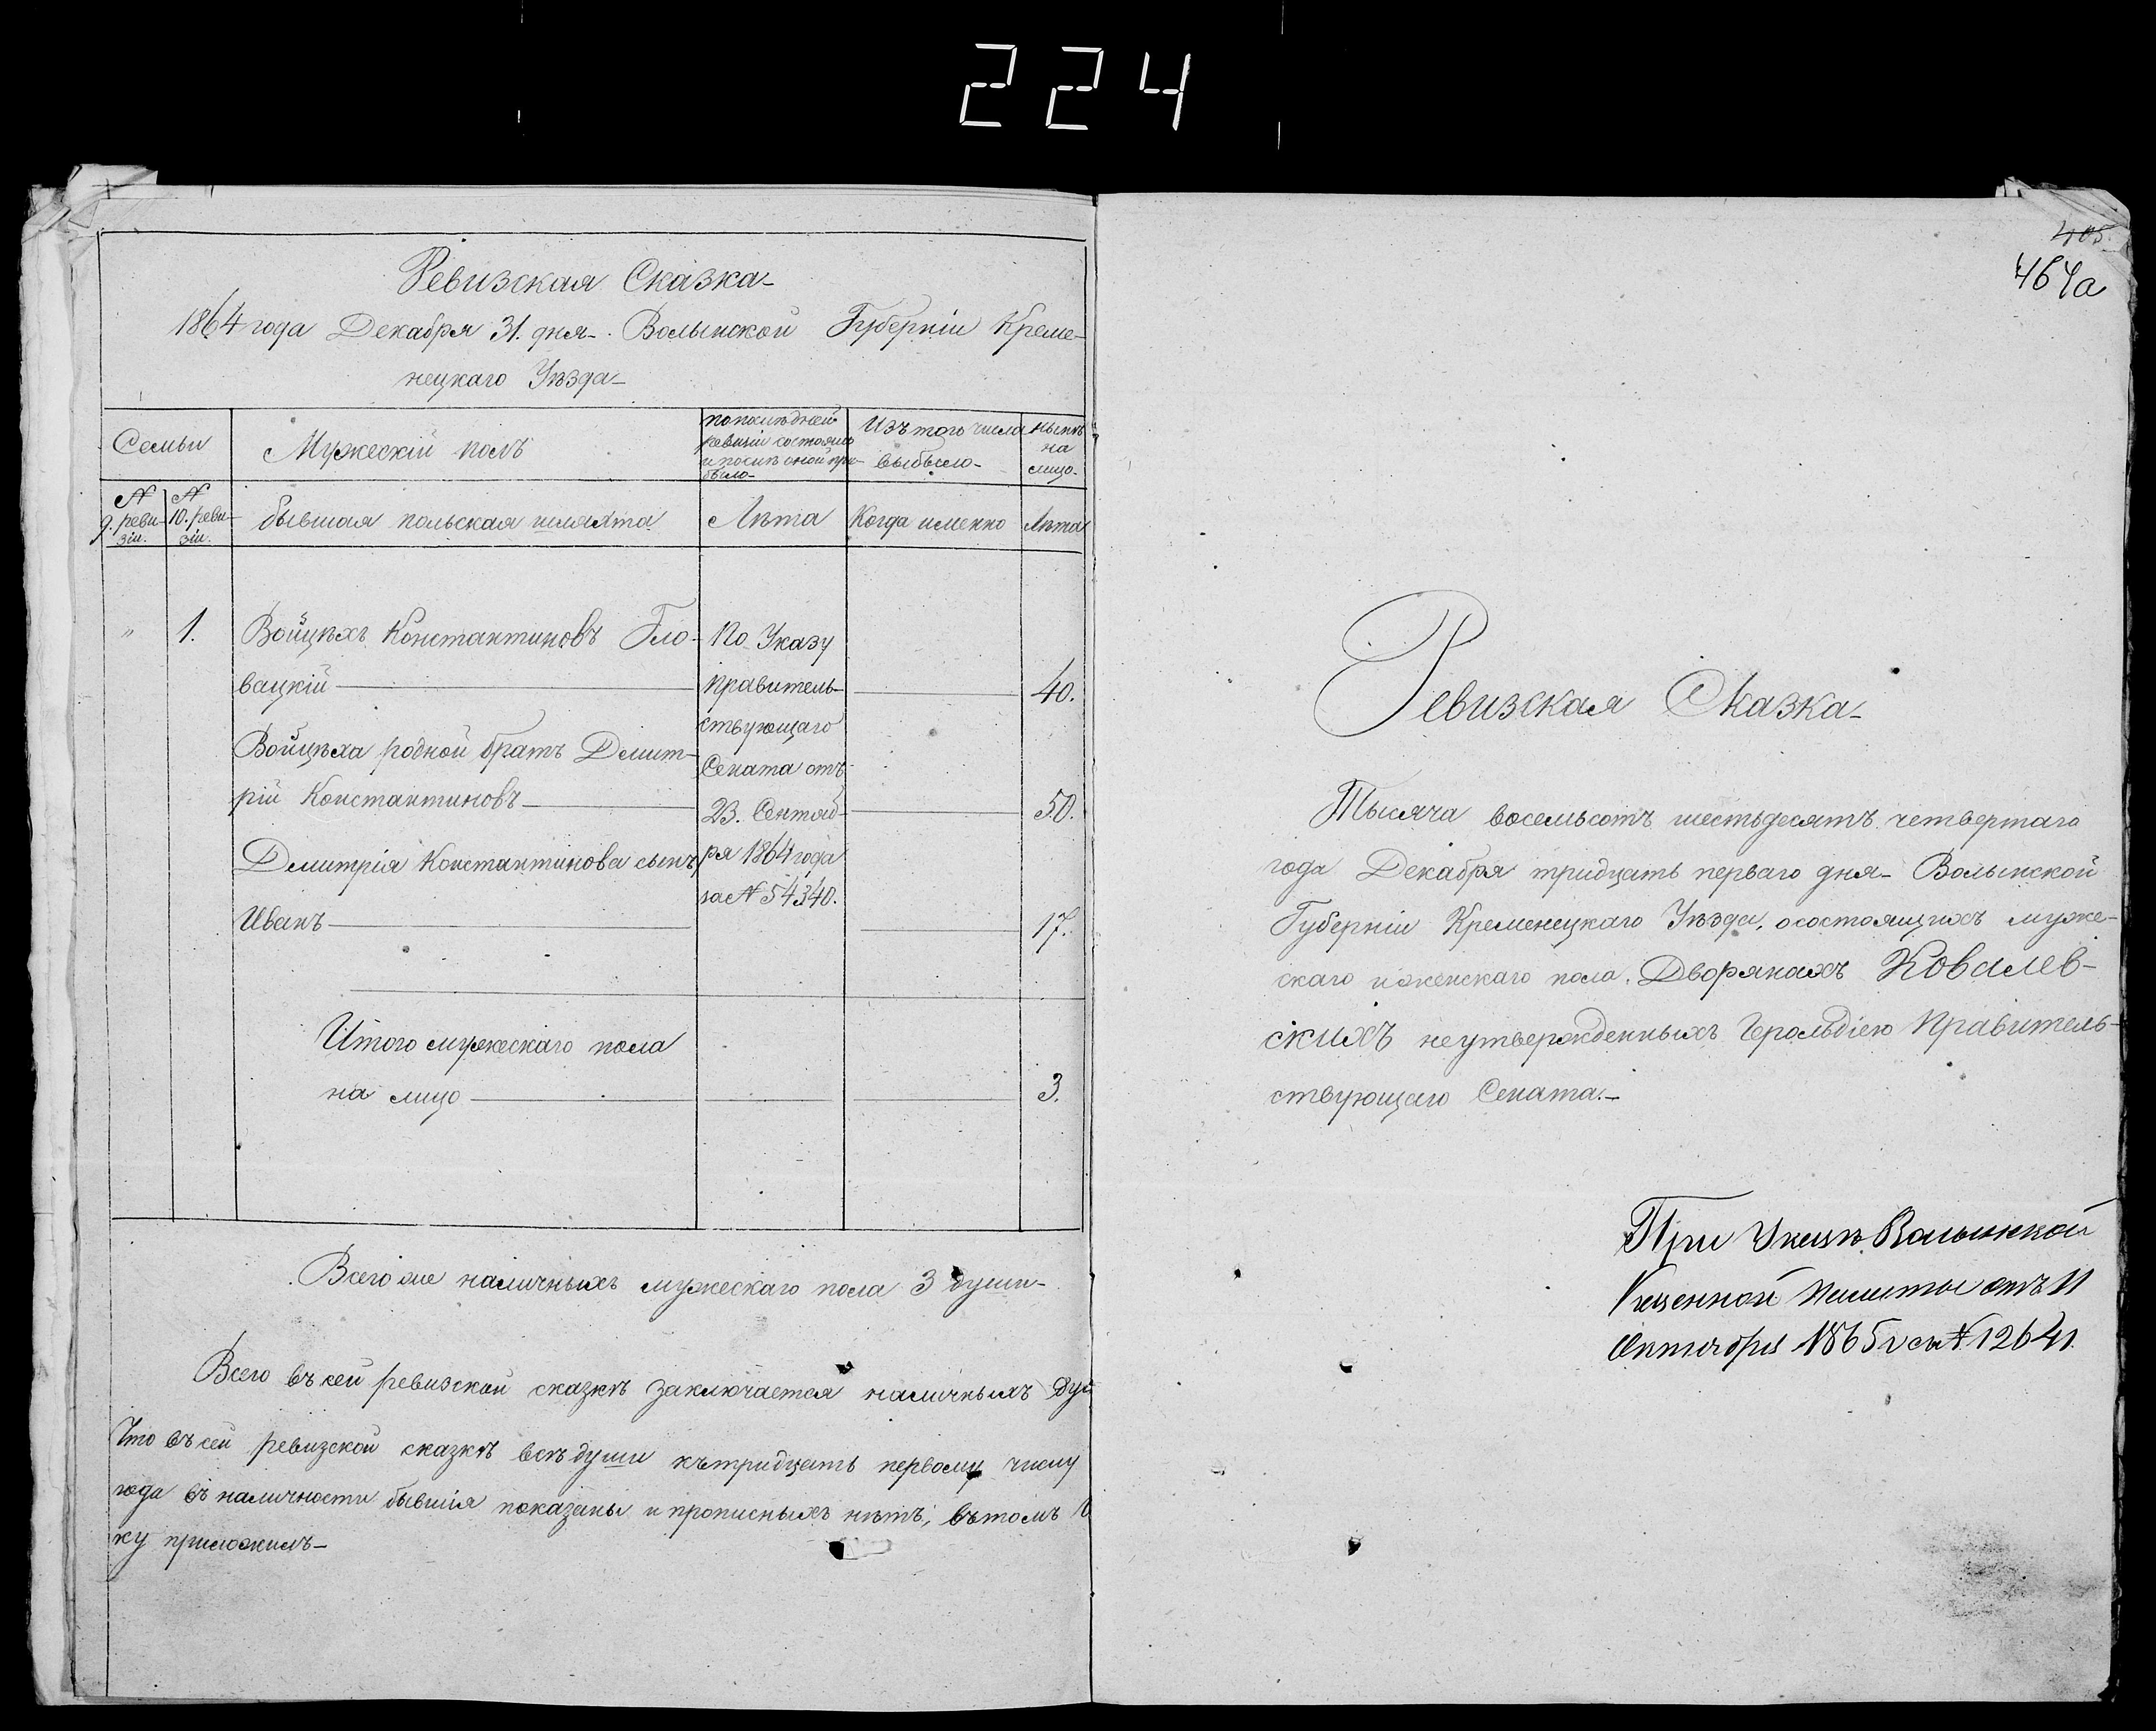 224
Ревизская Сказка
1864 года Декабря 31. дня. Волынской Губерніи Креме-
нецкаго Уѣзда
Семьи
Мужескій полъ
по послѣдней
ревизіи состояло
и послѣ оной при-
было
Изъ того числа
выбыло
нынѣ
на
лицо
№
9. реви-
зіи.
№
10. реви-
зіи.
бывшая польская шляхта
Лѣта
Когда именно
Лѣта
" 1. Войцѣхъ Константиновъ Гло-
вацкій 40.
Войцѣха родной братъ Дмит-
рій Константиновъ 50.
Дмитрія Константинова сынъ
Иванъ 17.
По Указу
Правитель-
ствующаго
Сената отъ
23. Сентяб-
ря 1864 года
за № 54340.
Итого мужескаго пола
на лицо 3.
Всего же наличныхъ мужескаго пола 3 души
Всего въ сей ревизской сказкѣ заключается наличныхъ душ
Что въ сей ревизской сказкѣ всѣ души къ тридцать первому числу
года въ наличности бывшія показаны и прописныхъ нѣтъ, въ томъ
ку приложилъ
405.
464а
Ревизская Сказка
Тысяча восемьсотъ шестьдесятъ четвертаго
года Декабря тридцать перваго дня Волынской
Губерніи Кременецкаго Уѣзда, о состоящихъ муже-
скаго и женскаго пола. Дворянахъ Ковалев-
скихъ неутвержденныхъ Герольдіею Правитель-
ствующаго Сената.
При Указѣ Волынской
Казенной Палаты отъ 11
Октября 1865 г за № 12641.